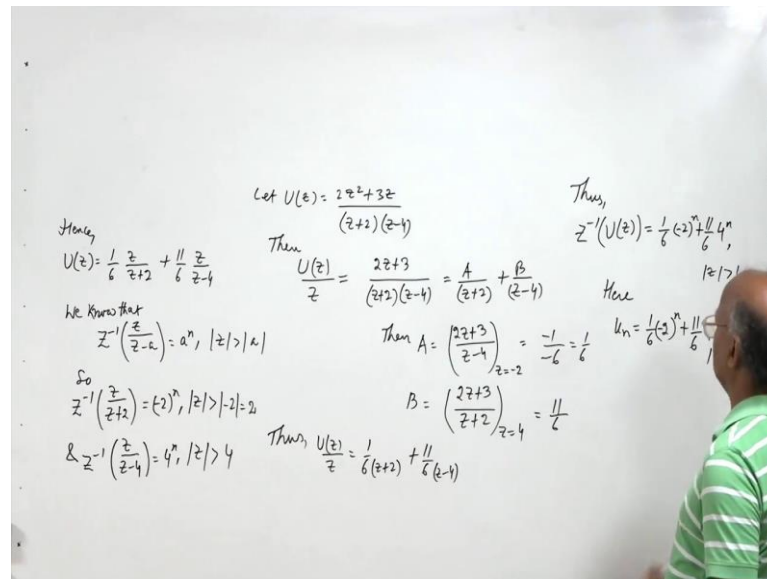 Let U(z) = (2z²+3z)/((z+2)(z-4))
Then
U(z)/z = (2z+3)/((z+2)(z-4)) = A/(z+2) + B/(z-4)
Then A = ((2z+3)/(z-4))_{z=-2} = -1/-6 = 1/6
B = ((2z+3)/(z+2))_{z=4} = 11/6
Thus, U(z)/z = 1/6(z+2) + 11/6(z-4)
Hence,
U(z) = 1/6 z/(z+2) + 11/6 z/(z-4)
We know that
Z⁻¹(z/(z-a)) = aⁿ, |z|>|a|
So
Z⁻¹(z/(z+2)) = (-2)ⁿ, |z|>|-2|=2
& Z⁻¹(z/(z-4)) = 4ⁿ, |z|>4
Thus,
Z⁻¹(U(z)) = 1/6 (-2)ⁿ + 11/6 4ⁿ,
|z|>
Here
uₙ = 1/6 (-2)ⁿ + 11/6